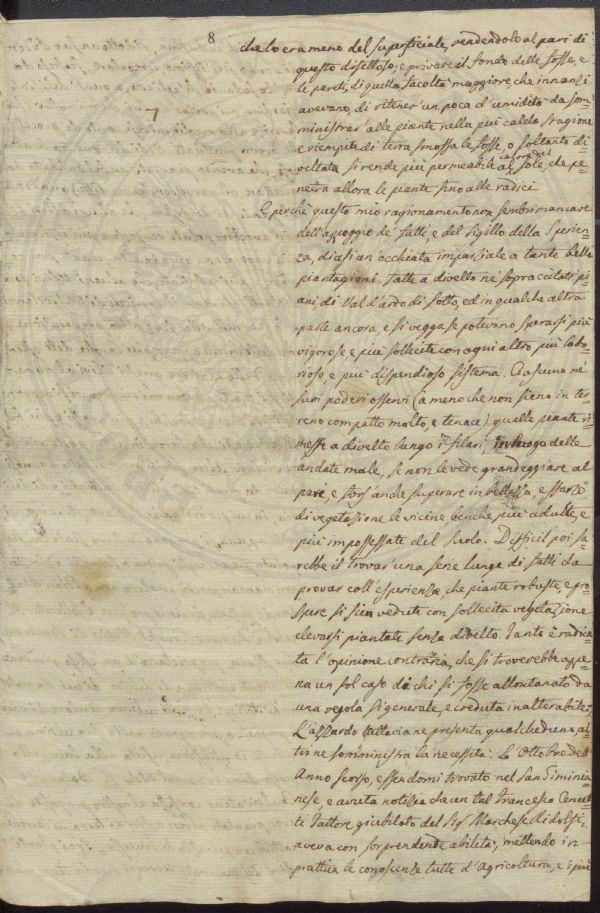 8
che lo era meno del superficiale, rendendolo al pari di
questo difettoso; e privare il fondo delle fosse, e
le pareti, di quella facoltà maggiore, che innanzi
avevano, di ritener un poca d'umidità da som-
ministrar' alle piante nella più calda stagione
e riempite di terra smossa le fosse, o soltanto di-
veltata si rende più permeabile
al calore del sole, che pe-
netra allora le piante fino alle radici
E perchè questo mio ragionamento non sembri mancare
dell'appoggio de' fatti, e del sigillo della Sperien-
za, diasi un'occhiata imparziale a tante belle
piantagioni fatte a divelto ne' sopraccitati pi-
ani di Val d'ardo di sotto, ed in qualche altra
parte ancora, e si vegga se potevano sperarsi più
vigorose, e più sollecite con ogni altro più labo-
rioso, e più dispendioso sistema. Ciascuno ne'
suoi poderi osservi (a meno che non sieno in ter-
reno compatto molto, e tenace) quelle piante ri-
messe a divelto lungo i filari, in luogo delle
andate male, se non le vede grandeggiare al
pari, e fors'anche superare in bellezza, e sfarzo
di vegetazione le vicine benchè più adulte, e
più impossessate del suolo. Difficil poi sa-
rebbe il trovar' una serie lunga di fatti da
provar coll'esperienza, che piante robuste, e pro-
spere si sien vedute con sollecita vegetazione
elevarsi piantate senza divelto. Tanto è radica-
ta l'opinione contraria, che si troverebbe appe-
na un sol caso di chi si fosse allontanato da
una regola sì generale, e creduta inalterabile;
L'azzardo tuttavia ne presenta qualcheduno, al-
tri ne somministra la necessità. L'Ottobre dell'
Anno scorso, essendomi trovato nel San Giminia-
nese, e avuta notizia che un tal Francesco
Fattore giubilato del Sig. Marchese Ridolfi,
aveva con sorprendente abilità, mettendo in
prattica le conoscenze tutte d'Agricoltura, e i più